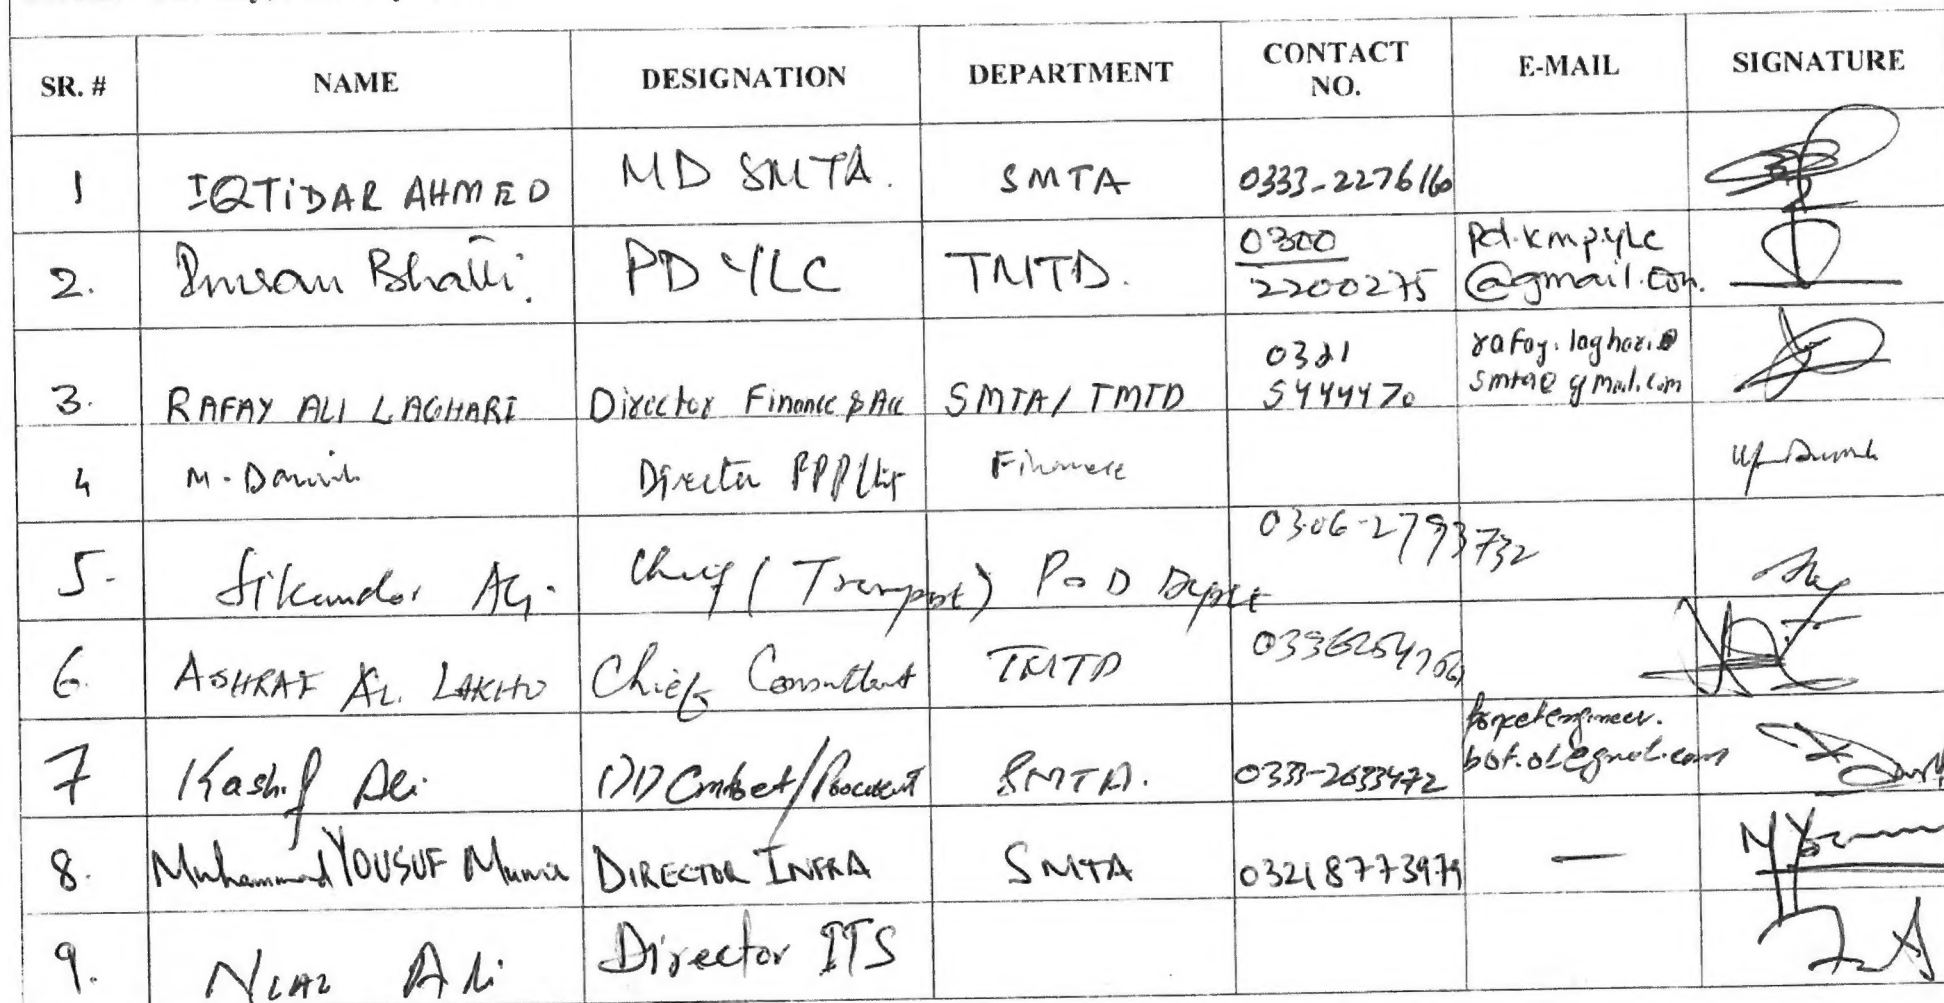 SR. # NAME DESIGNATION DEPARTMENT CONTACT NO. E-MAIL SIGNATURE
1 IQTiDAR AHMED MD SMTA. SMTA 0333-2276160
2. Imran Bhatti. PD YLC TMTD. 0300 2200275 pd.kmp.ylc @gmail.com.
3. RAFAY ALI LAGHARI Director Finance & Acc SMTA/TMTD 0321 5444470 rafay.laghari. smta@gmail.com
4 M. Danish Director PPP Finance
5. Sikandar Ali. Chief (Transport) P&D Deptt 0306-2793732
6. ASHRAF AL. LAKHO Chief Consultant TMTD
7 Kashif Ali DD Contract/Procurement SMTA. 0333-2633472
8. Muhammad YOUSUF Munir DIRECTOR INFRA SMTA 03218773979 —
9. NIAZ Ali Director ITS